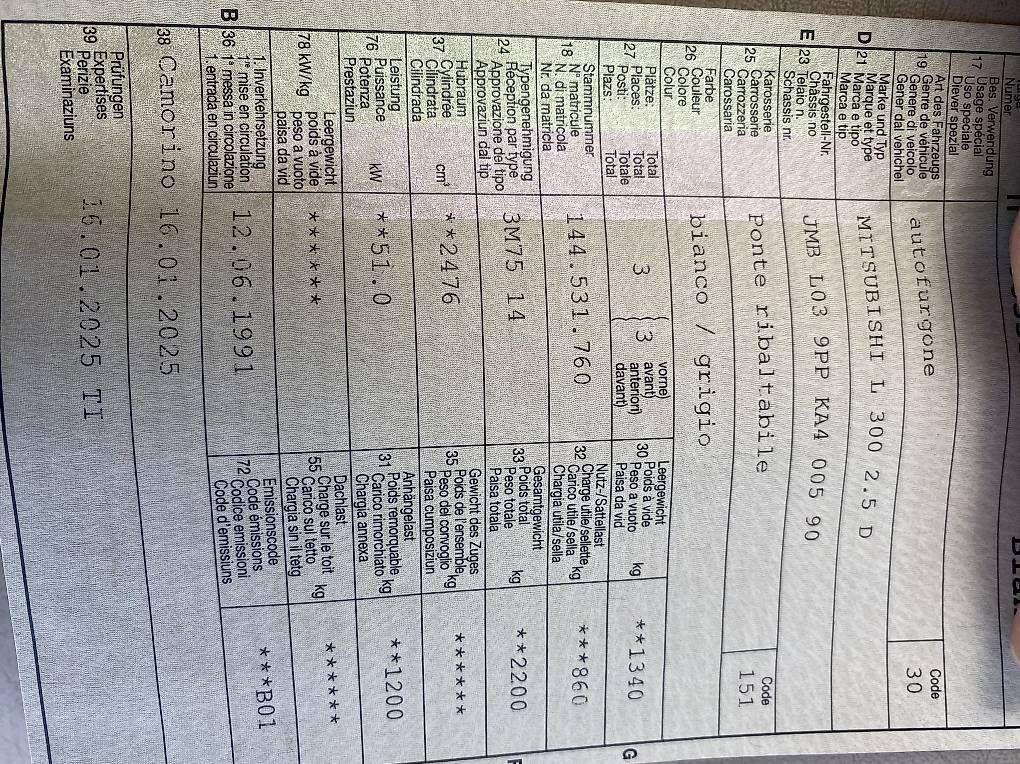 Numer
Bes. Verwendung
17 Usage spécial
Uso speciale
Diever spezial
Art des Fahrzeugs
19 Genre de véhicule
Genere di veicolo
Gener dal vehichel
autofurgone
Code
30
Marke und Typ
D 21 Marque et type
Marca e tipo
Marca e tip
MITSUBISHI L 300 2.5 D
Fahrgestell-Nr.
E 23 Châssis no
Telaio n.
Schassis nr.
JMB L03 9PP KA4 005 90
Karosserie
25 Carrosserie
Carrozzeria
Carossaria
Ponte ribaltabile
Code
151
Farbe
26 Couleur
Colore
Colur
bianco / grigio
Plätze: Total
27 Places: Total
Posti: Totale
Plazs: Total
3
3
vorne)
avant)
anteriori)
davant)
Leergewicht
30 Poids à vide
Peso a vuoto kg
Paisa da vid
**1340
G
Stammnummer
18 N° matricule
N. di matricola
Nr. da matricla
144.531.760
Nutz-/Sattellast
32 Charge utile/sellette kg
Carico utile/sella
Chargia utila/sella
***860
Typengenehmigung
24 Réception par type
Approvazione del tipo
Approvaziun dal tip
3M75 14
Gesamtgewicht
33 Poids total
Peso totale kg
Paisa totala
**2200
Hubraum
37 Cylindrée
Cilindrata cm³
Cilindrada
**2476
Gewicht des Zuges
35 Poids de l'ensemble kg
Peso del convoglio
Paisa cumposiziun
******
Leistung
76 Puissance
Potenza kW
Prestaziun
**51.0
Anhängelast
31 Poids remorquable kg
Carico rimorchiato
Chargia annexa
**1200
Leergewicht
78 kW/kg poids à vide
peso a vuoto
paisa da vid
******
Dachlast
55 Charge sur le toit kg
Carico sul tetto
Chargia sin il tetg
******
1. Inverkehrsetzung
B 36 1re mise en circulation
1a messa in circolazione
1. entrada en circulaziun
12.06.1991
Emissionscode
72 Code émissions
Codice emissioni
Code d'emissiuns
***B01
38 Camorino 16.01.2025
Prüfungen
39 Expertises
Perizie
Examinaziuns
16.01.2025 TI